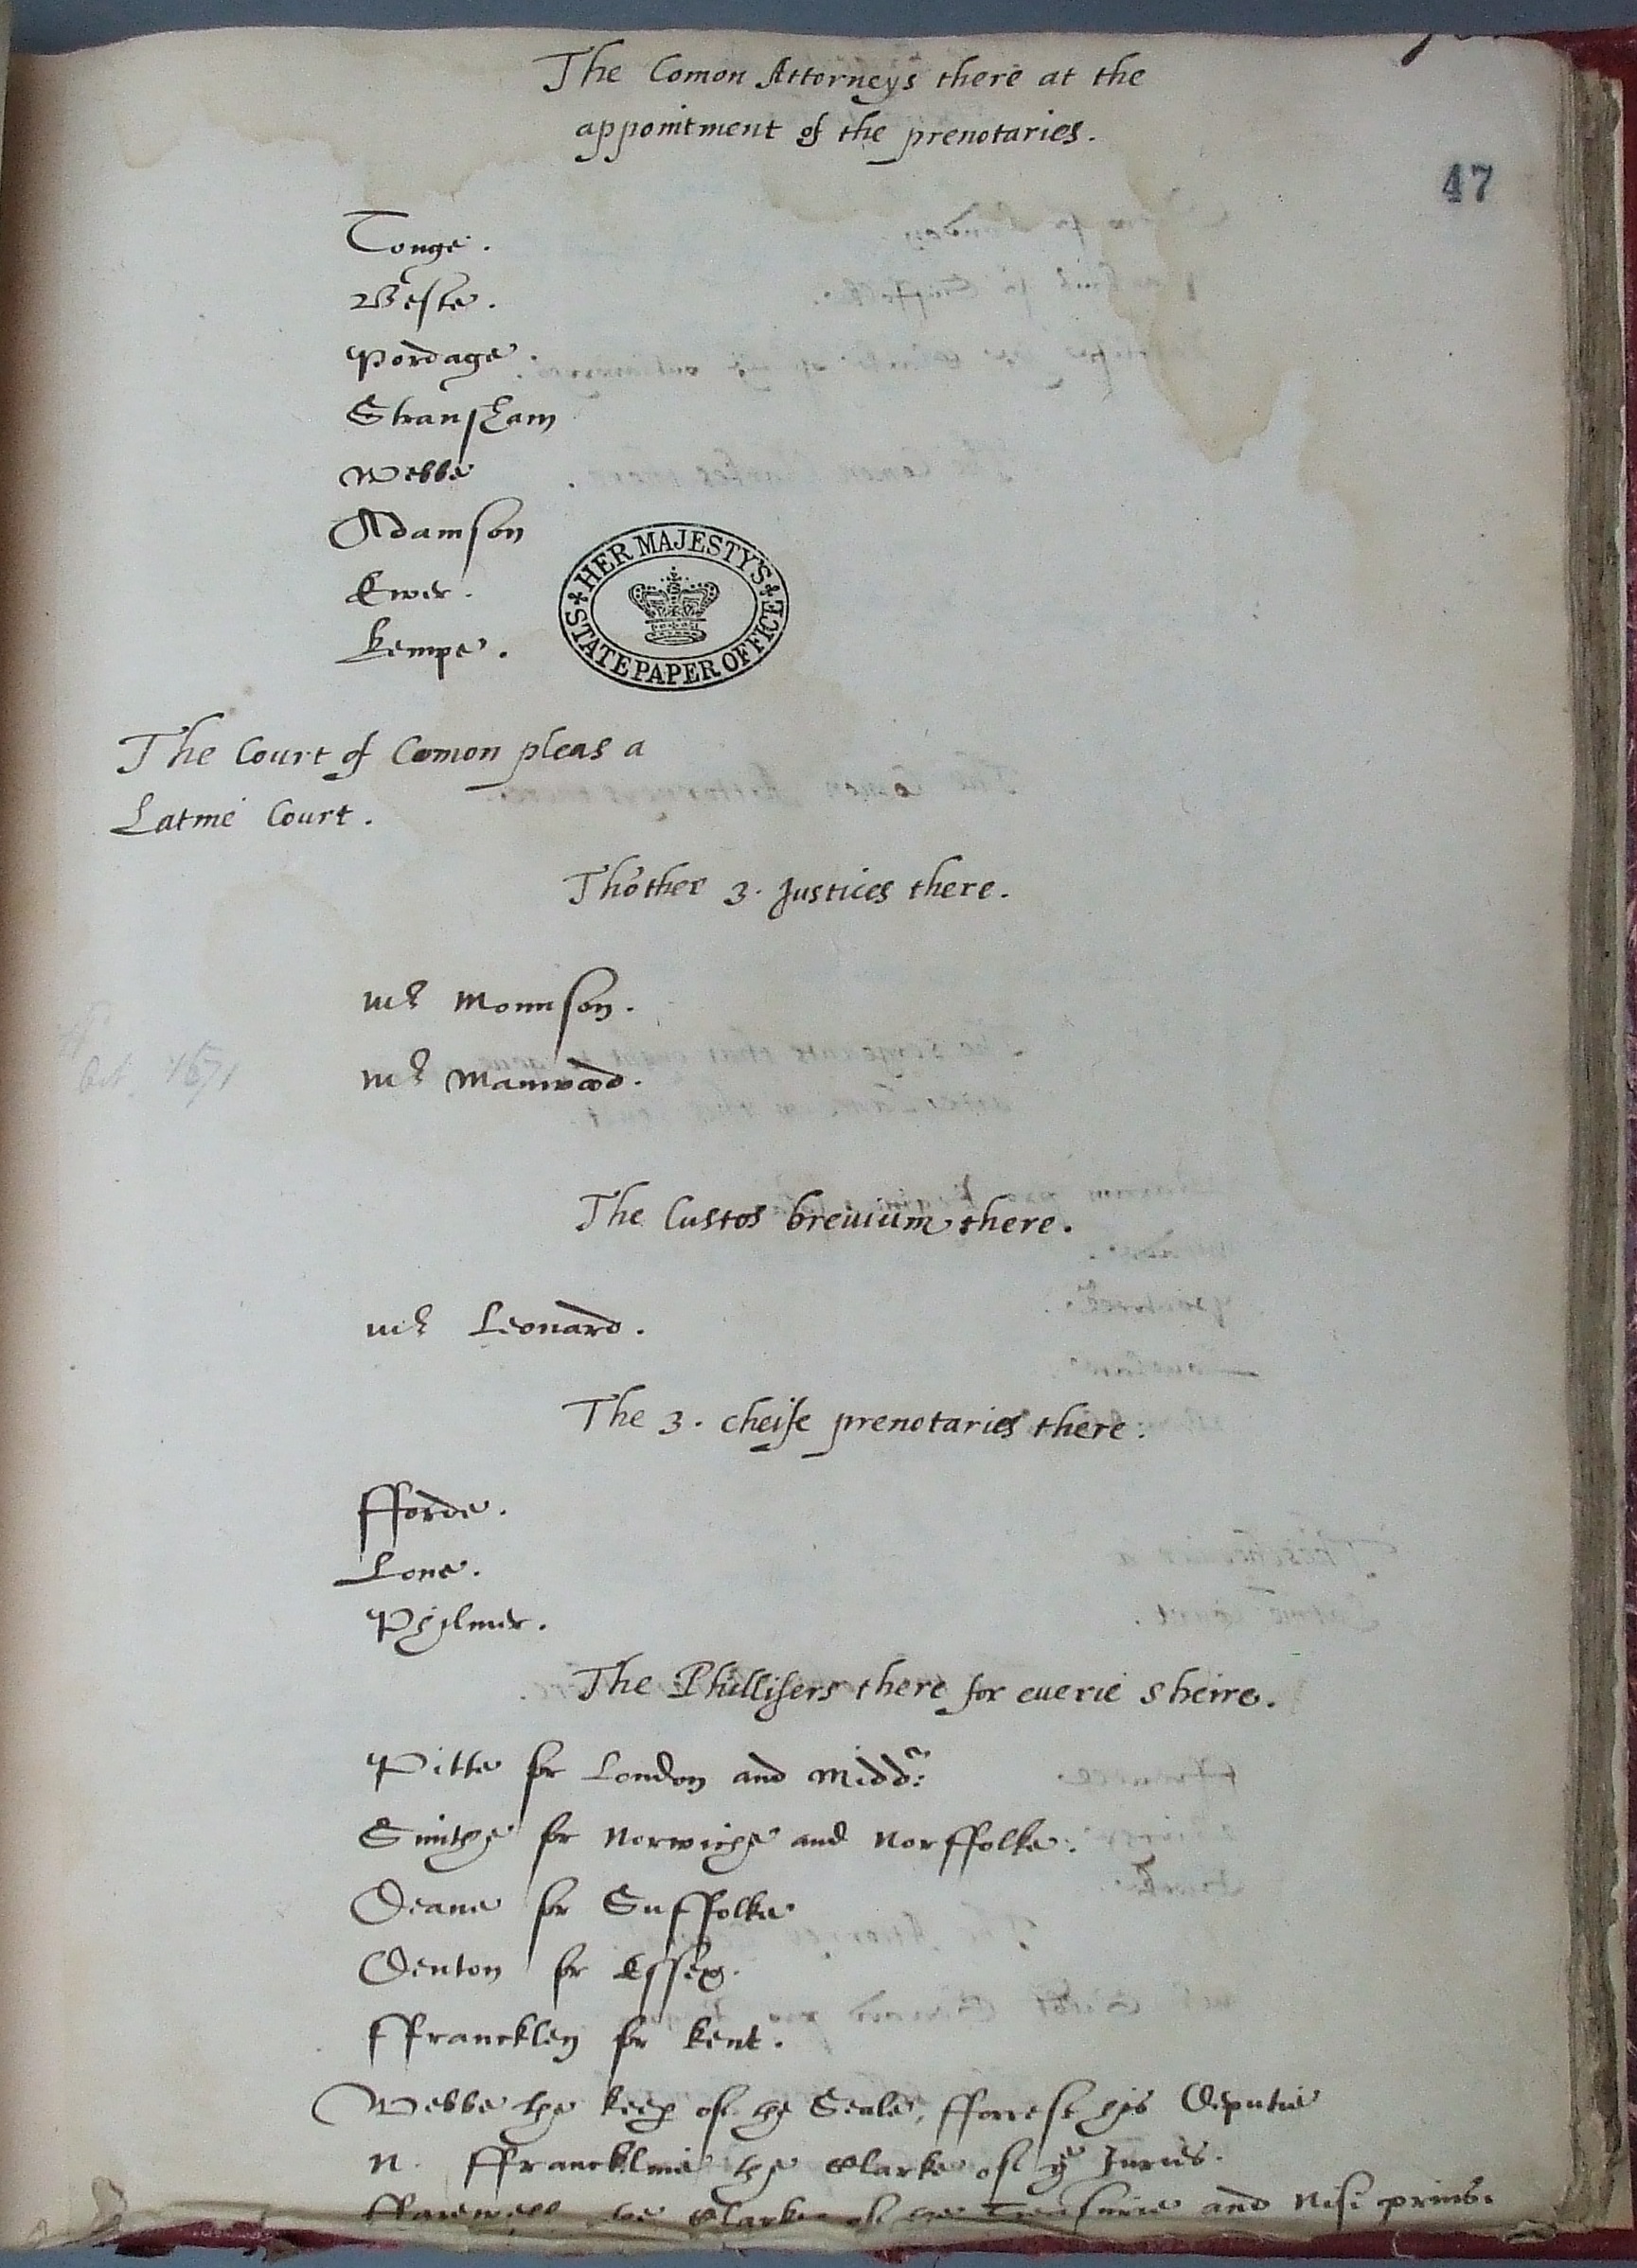 The Comon Attorneys there at the
appointment of the prenotaries.
47
Tonge.
Weste.
Pordage.
Stransham
Webbe
Adamson
Ewer.
Kempe.
HER MAJESTY'S
STATE PAPER OFFICE
The Court of Comon pleas a
Latine Court.
Thother 3. Justices there.
Mr Mounson.
Mr Manwood.
The Custos breuium there.
Mr Leonard.
The 3. cheife prenotaries there.
fforde.
Lone.
Phylmer.
The Phillisers there for euerie sheire.
Pitte for London and Midd:
Smithe for Norwiche and Norffolke.
Deane for Suffolke
Denton for Essex.
ffrancklen for Kent.
Webbe the keep of the Seale, fforrest his Deputie
N. ffranckline the Clarke of ye Juries.
the Clarke of the Treasurie and Nisi prius.